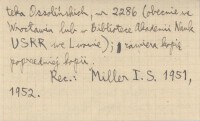 teka Ossolińskich, nr 2286 (obecnie we
Wrocławiu lub - Bibliotece Akademii Nauk
USRR we Lwowie); zawiera kopię
poprzedniej kopii.
Rec.: Miller I. S. 1951,
1952.